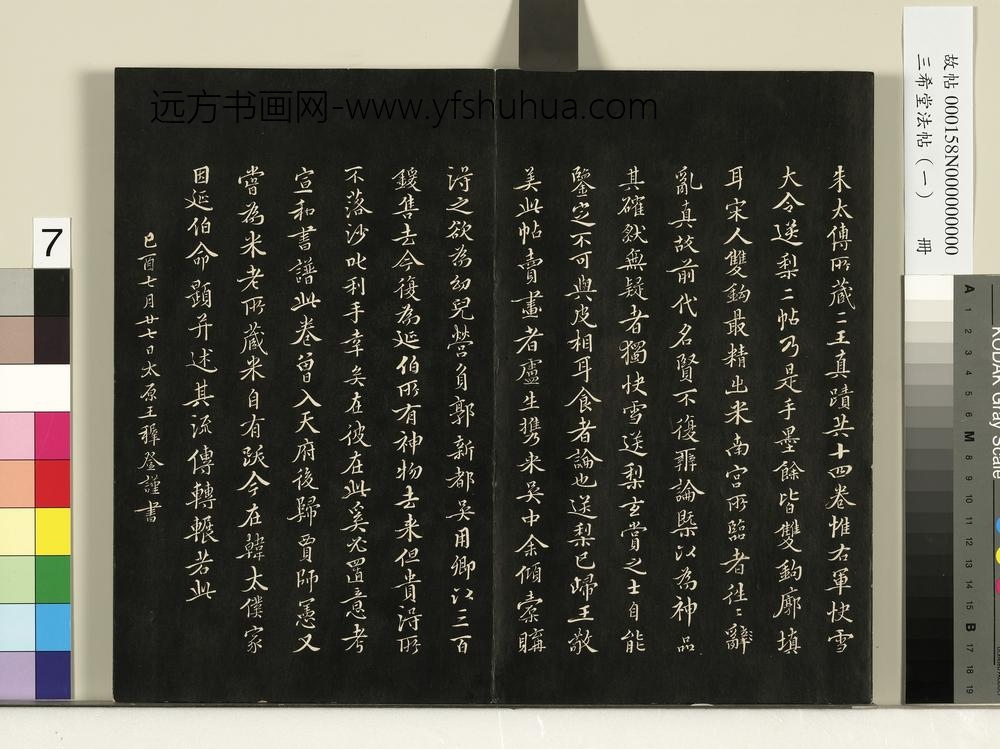 远方书画网-www.yfshuhua.com
故帖 000158N000000000
三希堂法帖（一） 冊
朱太傅所藏二王真蹟共十四卷惟右軍快雪
大令送梨二帖乃是手墨餘皆雙鈎廓填
耳宋人雙鈎最精出米南宫所臨者往〻辭
亂真故前代名賢不復辨論槩以為神品
其確然無疑者獨快雪送梨玄賞之士自能
鑒定不可與皮相耳食者論也送梨已歸王敬
美此帖賣畫者盧生攜来吳中余傾橐購
得之欲為幼兒營負郭新都吳用卿以三百
鍰售去今復為延伯所有神物去来但貴得所
不落沙叱利手幸矣在彼在此奚足置意考
宣和書譜此卷曾入天府後歸賈師憲又
嘗為米老所藏米自有跋今在韓太僕家
因延伯命題并述其流傳轉輾若此
己酉七月廿七日太原王穉登謹書
7
KODAK Gray Scale
A 1 2 3 4 5 6 M 8 9 10 11 12 13 14 15 B 17 18 19